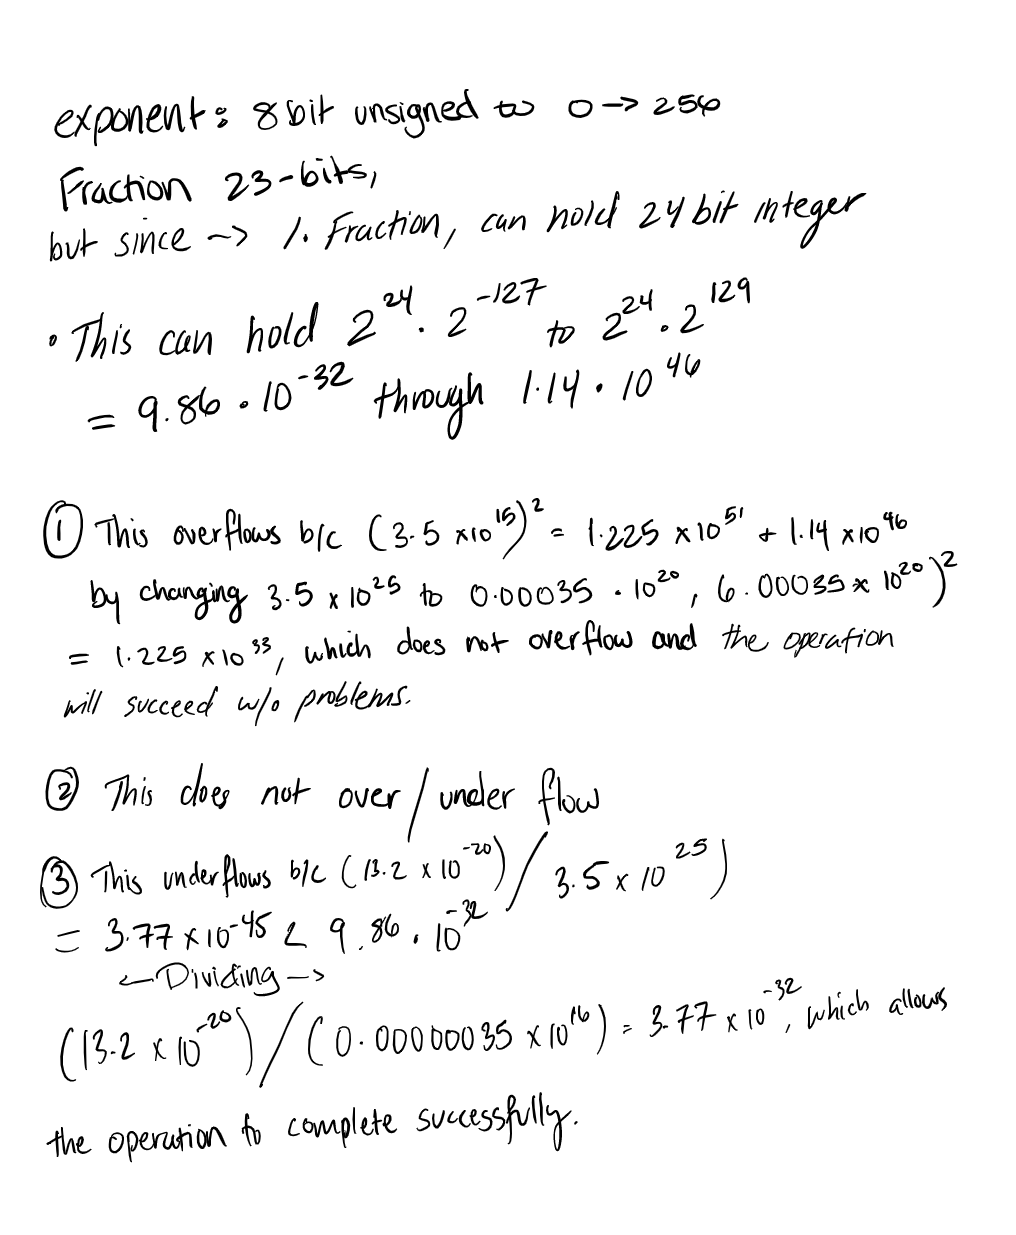 exponent: 8 bit unsigned to 0 → 256
Fraction 23-bits,
but since → 1. Fraction, can hold 24 bit integer
• This can hold 2^24 · 2^-127 to 2^24 · 2^129
= 9.86 · 10^-32 through 1.14 · 10^46
① This overflows b/c (3.5 x10^15)^2 = 1.225 x 10^51 + 1.14 x10^46
by changing 3.5 x 10^25 to 0.00035 · 10^20, 6.00035 x 10^20)^2
= 1.225 x10^33, which does not overflow and the operation
will succeed w/o problems.
② This does not over/under flow
③ This underflows b/c (13.2 x 10^-20) / 3.5 x 10^25)
= 3.77 x 10^-45 < 9.86 · 10^-32
← Dividing →
(13.2 x 10^-20) / (0.00000035 x 10^16) = 3.77 x 10^-32, which allows
the operation to complete successfully.